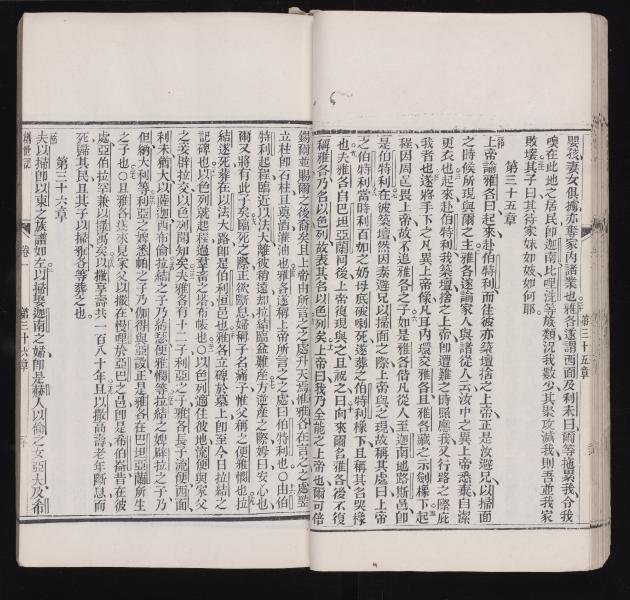 嬰孩妻女俱擄亦奪家內諸業也雅各遂謂西面及利未曰爾等拖累我令我
嗅在此地之居民卽迦南與比哩洗等族類況我數少其聚攻滅我則吾並我家
敗壞其子曰其待家妹如妓如何耶
第三十五章
上帝諭雅各曰起來赴伯特利而住彼亦築壇捨之上帝正是汝避兄以掃面
之時候所現與爾之主雅各遂諭家人與諸從人云汝中之異上帝悉棄自潔
更衣也起來赴伯特利我築壇捨之上帝卽遭難之時賜應我又行路之際庇
我者也遂將手下之凡異上帝像凡耳內環交雅各且雅各藏之示劍橡下起
程因周邑畏上帝故不追雅各之子如是雅各偕凡從人至迦南地路斯邑卽
是伯特利在彼築壇然因奏避兄以掃面之際上帝與之現故稱其處曰上帝
之伯特利當時利百加之奶母底破喇死遂葬之伯特利橡下且稱其名哭橡
也夫雅各自巴坦亞蘭回後上帝復現與之且祝之曰向來爾名雅各後不復
稱雅各乃名以色列故表其名以色列矣上帝曰我乃全能之上帝也爾可倍
立柱卽石柱且奠酒灌油也雅各遂稱上帝所言之之處曰伯特利也由伯
特利起程臨近以法大離彼稍遠却拉結臨盆難產方逆產之際姆曰安心也
爾又將有此子矣臨死之際正欲斷息婦稱子名痛子惟父稱之便雅憫也拉
結遂死葬在以法大路卽是伯利恒邑也雅各立碑於墓上卽至今日拉結之
記碑也以色列就起程過羣畜之塔布帳也以色列適住彼地流便與家父
之妾辟拉交以色列聞知矣夫雅各有十二子利亞之子雅各長子流便西面
利未猶大以薩迦西布倫拉結之子乃約瑟便雅憫等拉結之婢辟拉之子乃
但納大利等利亞之婢悉帕之子乃伽得與亞設正是雅各在巴坦亞蘭所生
之子也且雅各往來見家父以撒在慢哩於亞巴之邑卽是希伯崙昔在彼
處亞伯拉罕兼以撒寓矣以撒享壽共一百八十年且以撒高壽老年斷息而
死歸其民且其子以掃雅各等葬之也
第三十六章
夫以掃卽以東之族譜如左以掃娶迦南之婦卽是赫人以倫之女亞大及希